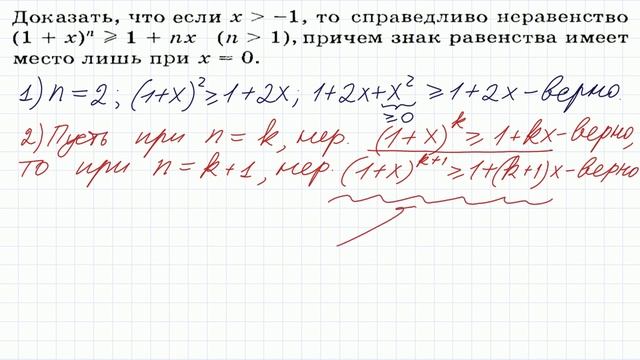 Доказать, что если x > −1, то справедливо неравенство
(1 + x)ⁿ ⩾ 1 + nx (n > 1), причем знак равенства имеет
место лишь при x = 0.
1) n = 2; (1+x)² ≥ 1+2x; 1+2x+x² ≥ 1+2x - верно.
≥0
2) Пусть при n = k, нер. (1+x)ᵏ ≥ 1+kx - верно,
то при n = k+1, нер. (1+x)ᵏ⁺¹ ≥ 1+(k+1)x - верно